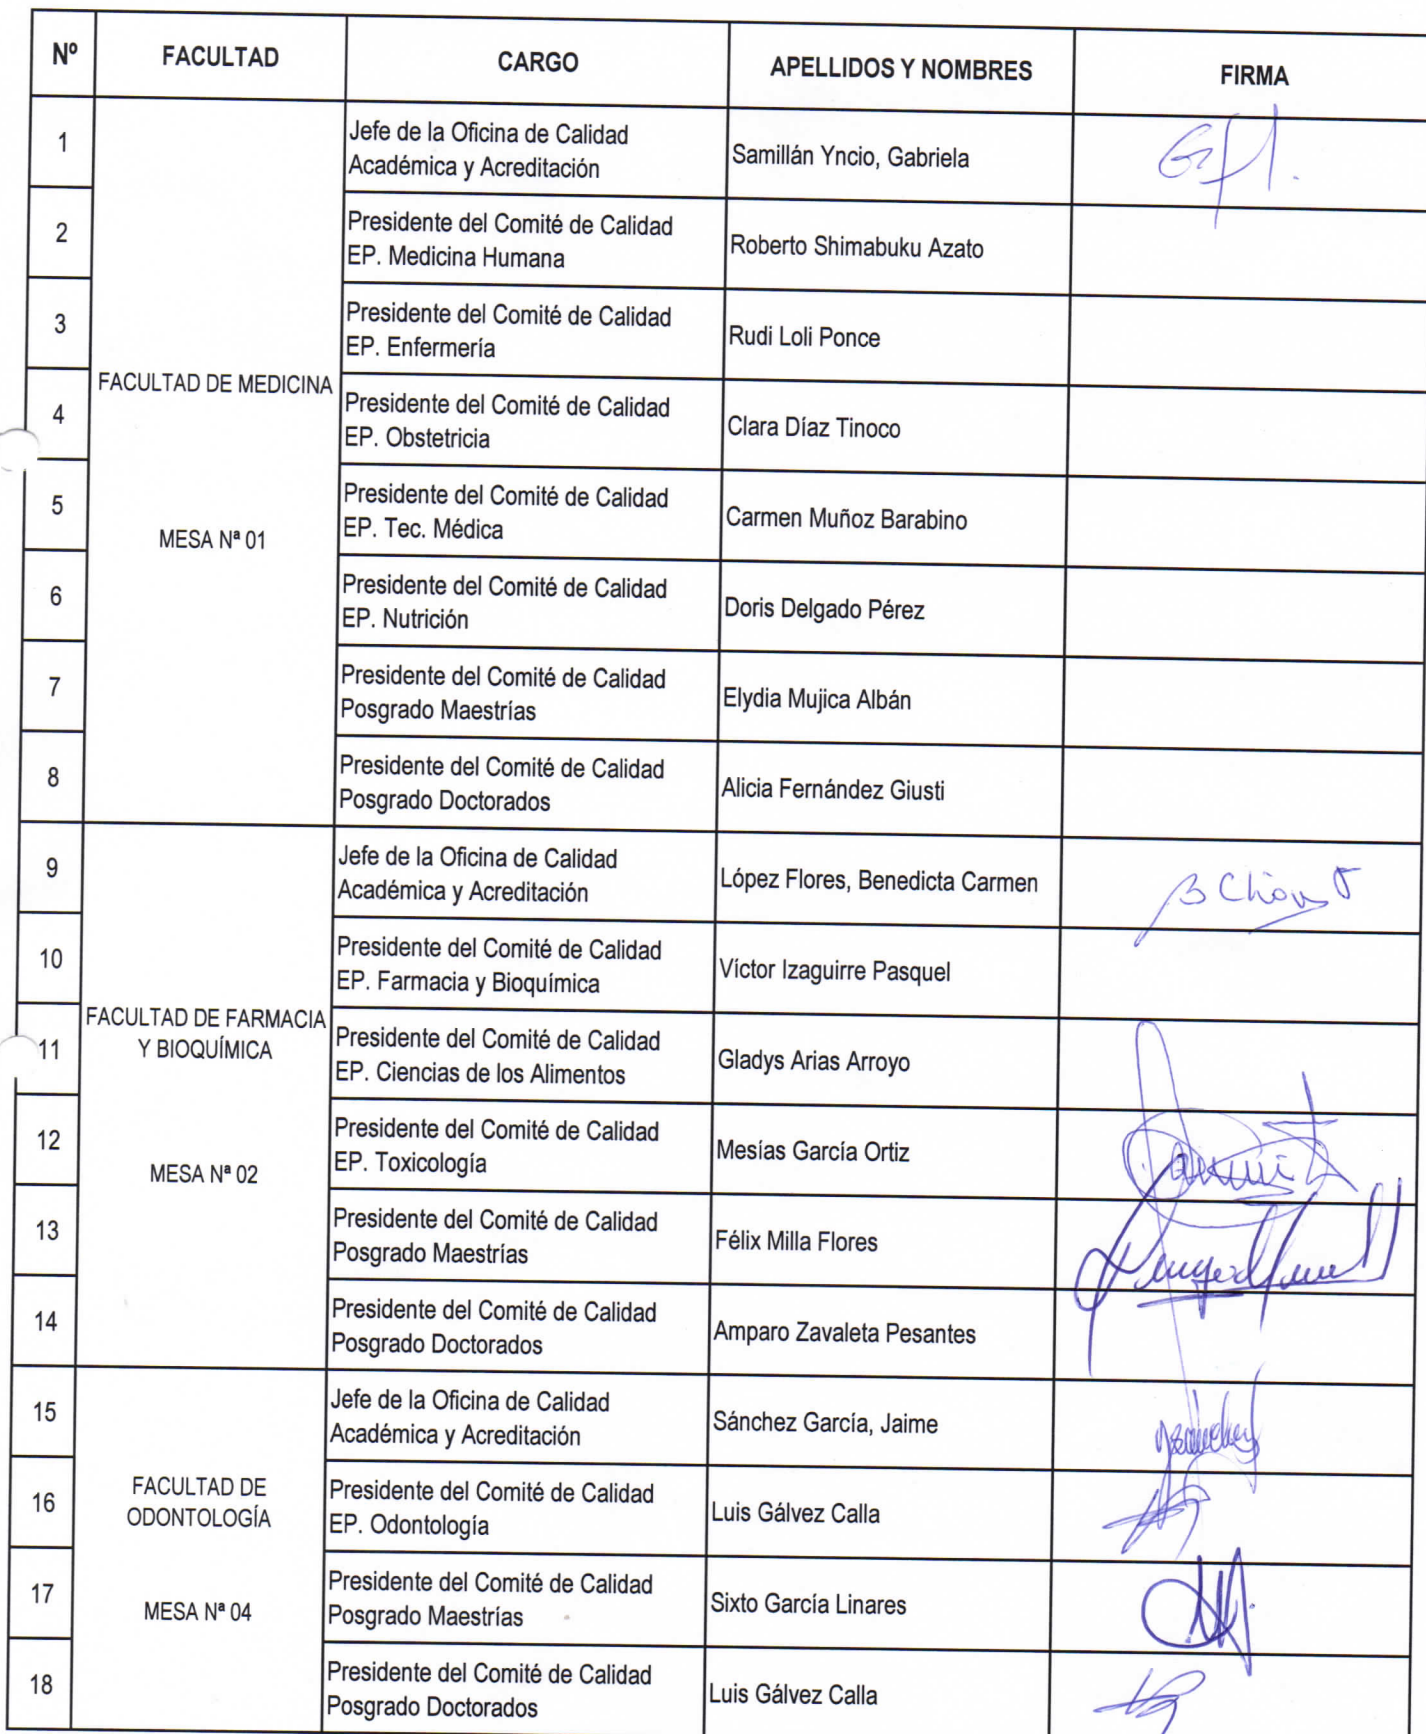 Nº FACULTAD CARGO APELLIDOS Y NOMBRES FIRMA
1 Jefe de la Oficina de Calidad
Académica y Acreditación Samillán Yncio, Gabriela
2 Presidente del Comité de Calidad
EP. Medicina Humana Roberto Shimabuku Azato
3 Presidente del Comité de Calidad
EP. Enfermería Rudi Loli Ponce
FACULTAD DE MEDICINA
4 Presidente del Comité de Calidad
EP. Obstetricia Clara Díaz Tinoco
5 Presidente del Comité de Calidad
EP. Tec. Médica Carmen Muñoz Barabino
MESA Nª 01
6 Presidente del Comité de Calidad
EP. Nutrición Doris Delgado Pérez
7 Presidente del Comité de Calidad
Posgrado Maestrías Elydia Mujica Albán
8 Presidente del Comité de Calidad
Posgrado Doctorados Alicia Fernández Giusti
9 Jefe de la Oficina de Calidad
Académica y Acreditación López Flores, Benedicta Carmen
10 Presidente del Comité de Calidad
EP. Farmacia y Bioquímica Víctor Izaguirre Pasquel
FACULTAD DE FARMACIA
Y BIOQUÍMICA
11 Presidente del Comité de Calidad
EP. Ciencias de los Alimentos Gladys Arias Arroyo
12 Presidente del Comité de Calidad
EP. Toxicología Mesías García Ortiz
MESA Nª 02
13 Presidente del Comité de Calidad
Posgrado Maestrías Félix Milla Flores
14 Presidente del Comité de Calidad
Posgrado Doctorados Amparo Zavaleta Pesantes
15 Jefe de la Oficina de Calidad
Académica y Acreditación Sánchez García, Jaime
FACULTAD DE
ODONTOLOGÍA
16 Presidente del Comité de Calidad
EP. Odontología Luis Gálvez Calla
17 Presidente del Comité de Calidad
Posgrado Maestrías Sixto García Linares
MESA Nª 04
18 Presidente del Comité de Calidad
Posgrado Doctorados Luis Gálvez Calla